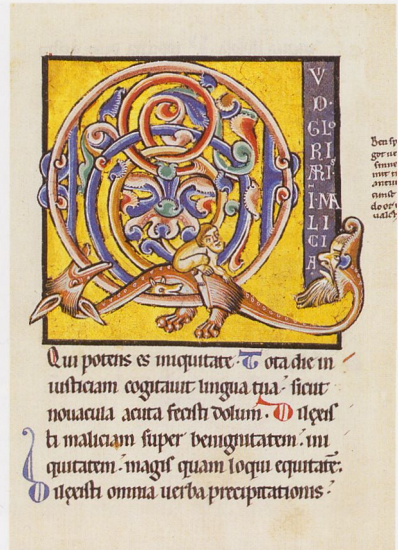 V
D·
GLO
RI
ARI
INMA
LI
CI
A·
Qui potens es iniquitate· Tota die in
iusticiam cogitauit lingua tua· sicut
nouacula acuta fecisti dolum· Dilexis
ti maliciam super benignitatem· ini
quitatem· magis quam loqui equitatē·
Dilexisti omnia uerba precipitationis·
Ben sp
got ue